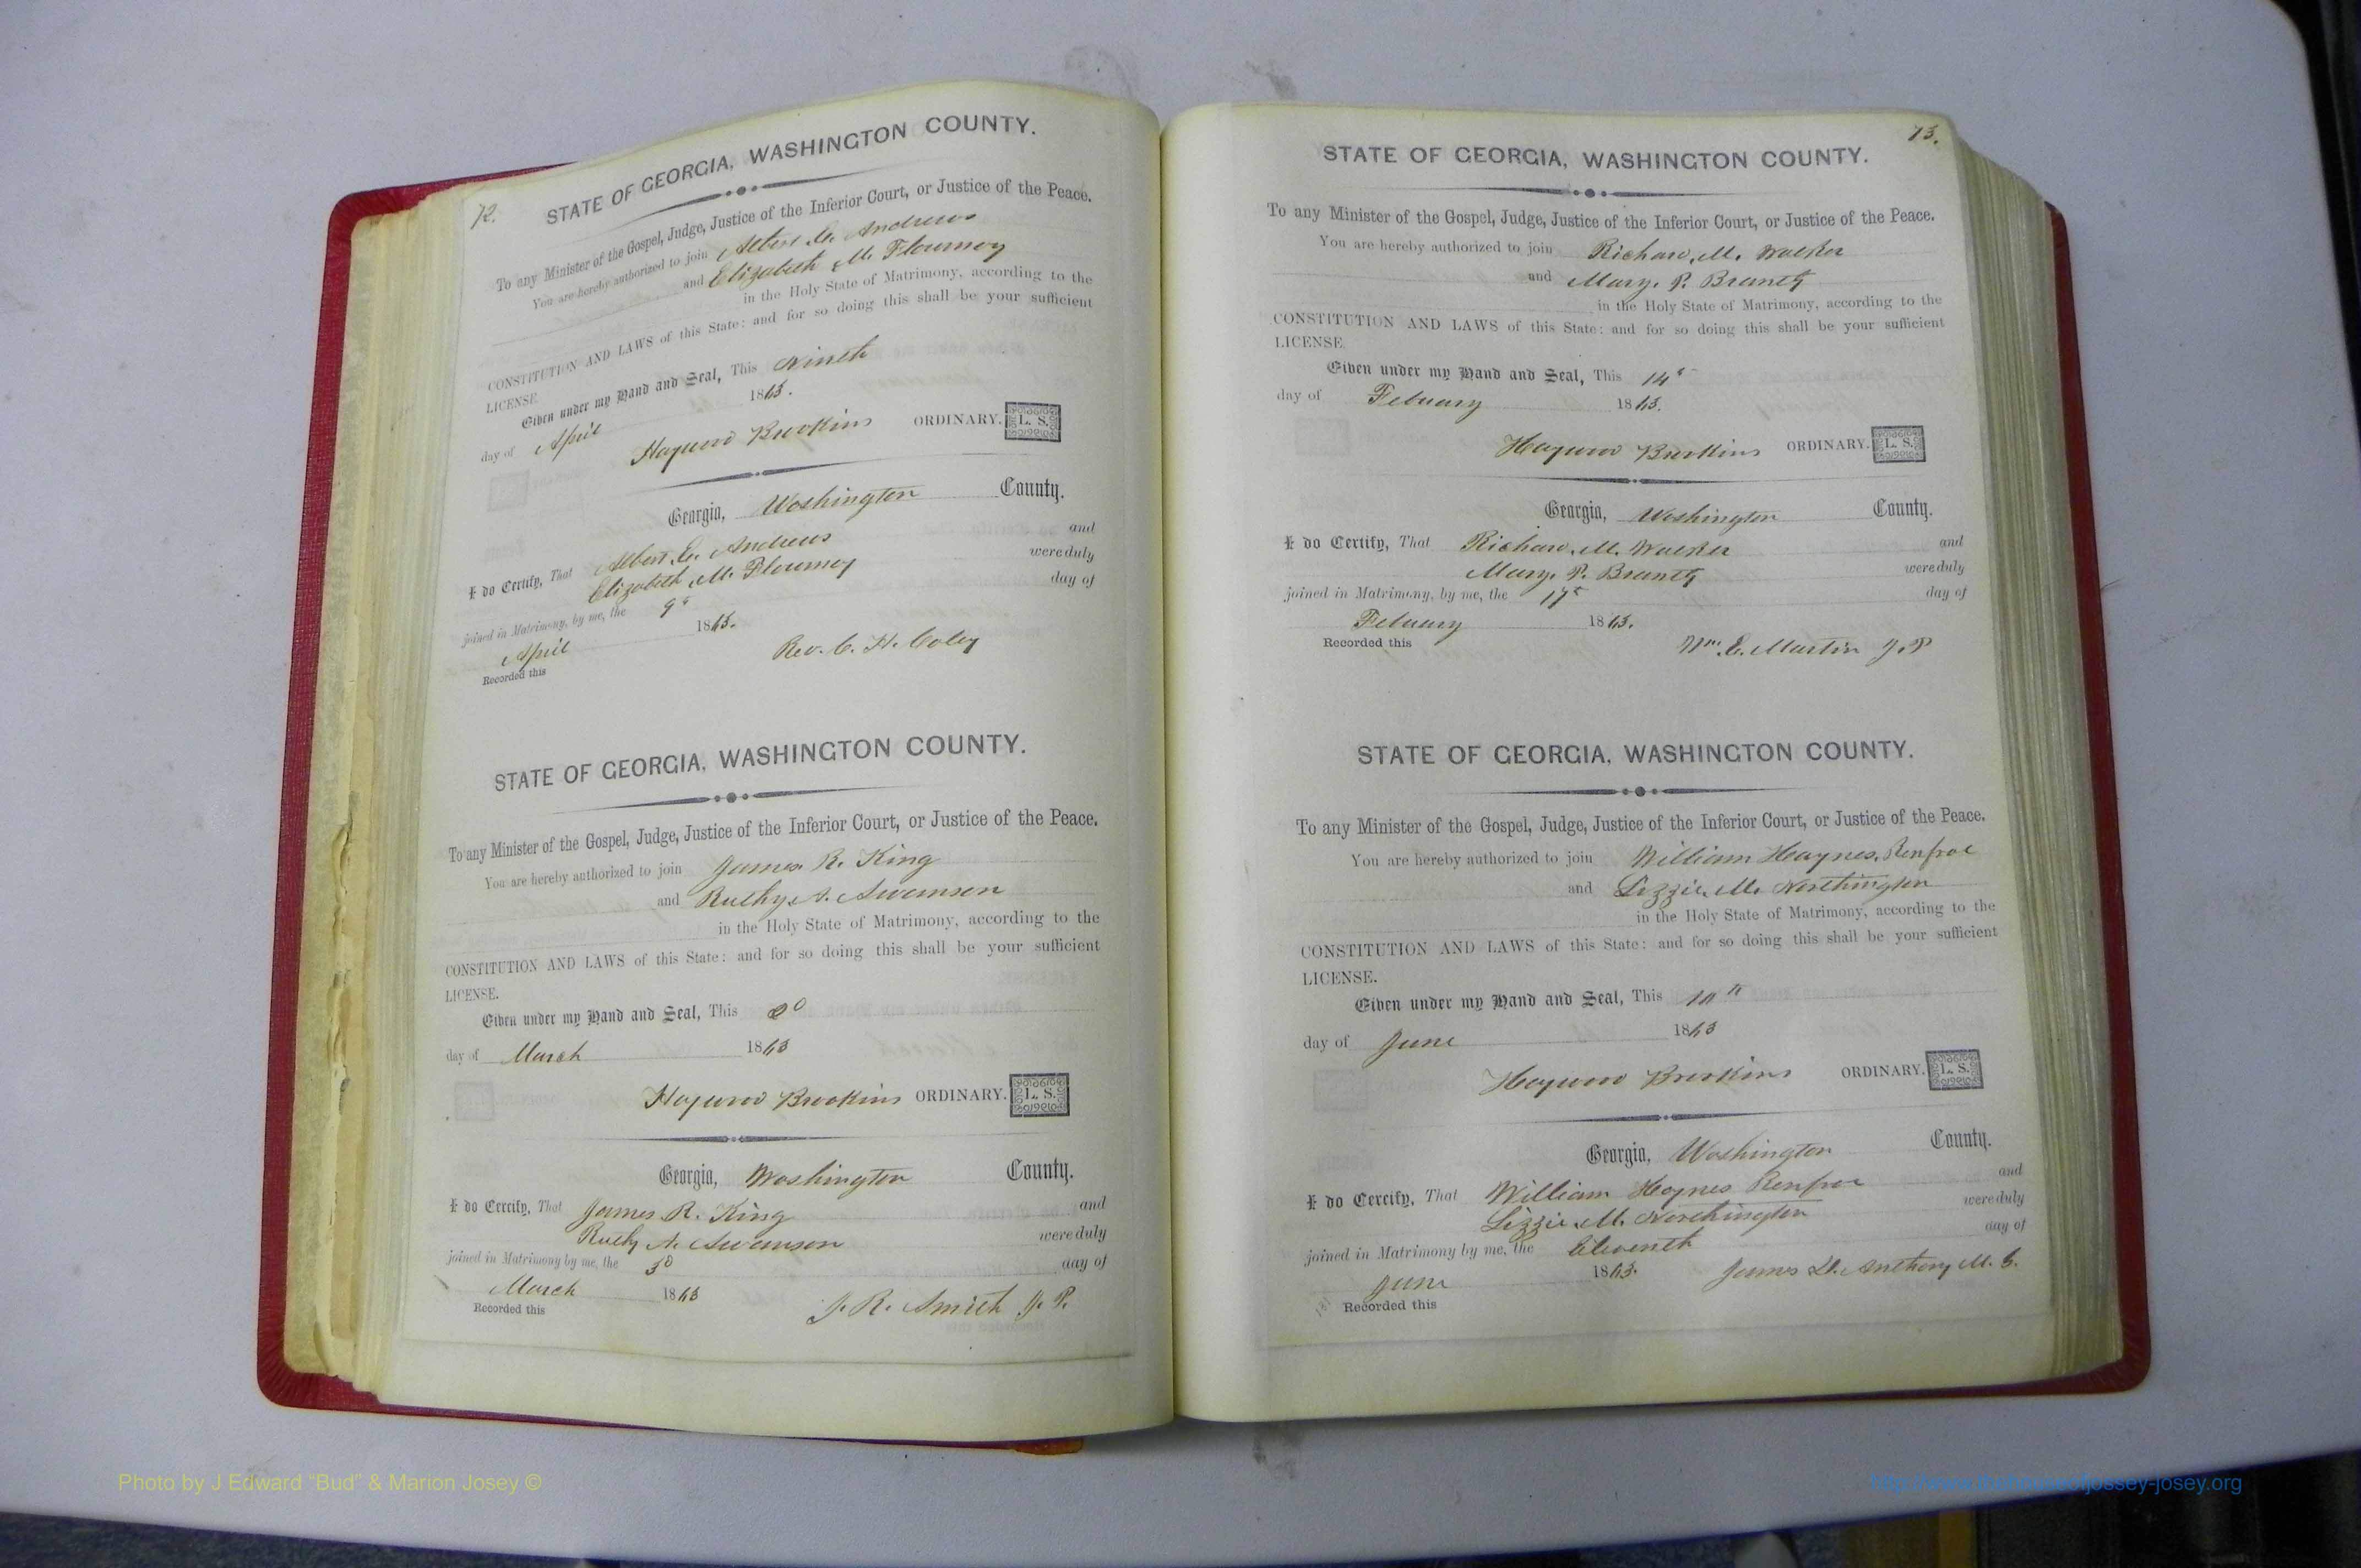 72.
STATE OF GEORGIA, WASHINGTON COUNTY.
To any Minister of the Gospel, Judge, Justice of the Inferior Court, or Justice of the Peace.
You are hereby authorized to join Albert G. Andrews
and Elizabeth M. Flournoy
in the Holy State of Matrimony, according to the
CONSTITUTION AND LAWS of this State: and for so doing this shall be your sufficient
LICENSE
Given under my Hand and Seal, This Nineth
day of April 1863.
Haywood Brookins ORDINARY. L. S.
Georgia, Washington County.
I do Certify, That Albert G. Andrews and
Elizabeth M. Flournoy were duly
joined in Matrimony, by me, the 9th day of
April 1863.
Recorded this Rev. C. H. Coley
STATE OF GEORGIA, WASHINGTON COUNTY.
To any Minister of the Gospel, Judge, Justice of the Inferior Court, or Justice of the Peace.
You are hereby authorized to join James R. King
and Ruthy A. Swanson
in the Holy State of Matrimony, according to the
CONSTITUTION AND LAWS of this State: and for so doing this shall be your sufficient
LICENSE.
Given under my Hand and Seal, This 2d
day of March 1863
Haywood Brookins ORDINARY. L. S.
Georgia, Washington County.
I do Certify, That James R. King and
Ruthy A. Swanson were duly
joined in Matrimony by me, the 3d day of
March 1863
Recorded this J. R. Smith J. P.
73.
STATE OF GEORGIA, WASHINGTON COUNTY.
To any Minister of the Gospel, Judge, Justice of the Inferior Court, or Justice of the Peace.
You are hereby authorized to join Richard M. Walker
and Mary. P. Brantly
in the Holy State of Matrimony, according to the
CONSTITUTION AND LAWS of this State: and for so doing this shall be your sufficient
LICENSE
Given under my Hand and Seal, This 14th
day of Febuary 1863.
Haywood Brookins ORDINARY. L. S.
Georgia, Washington County.
I do Certify, That Richard M. Walker and
Mary. P. Brantly were duly
joined in Matrimony, by me, the 17th day of
Febuary 1863.
Recorded this Wm. E. Martin J. P
STATE OF GEORGIA, WASHINGTON COUNTY.
To any Minister of the Gospel, Judge, Justice of the Inferior Court, or Justice of the Peace.
You are hereby authorized to join William Haynes Renfroe
and Lizzie M. Northington
in the Holy State of Matrimony, according to the
CONSTITUTION AND LAWS of this State: and for so doing this shall be your sufficient
LICENSE.
Given under my Hand and Seal, This 10th
day of June 1863
Haywood Brookins ORDINARY. L. S.
Georgia, Washington County.
I do Certify, That William Haynes Renfroe and
Lizzie M. Northington were duly
joined in Matrimony by me, the Eleventh day of
June 1863. James D. Anthony M. G.
Recorded this
Photo by J Edward “Bud” & Marion Josey ©
http://www.thehouseofjossey-josey.org